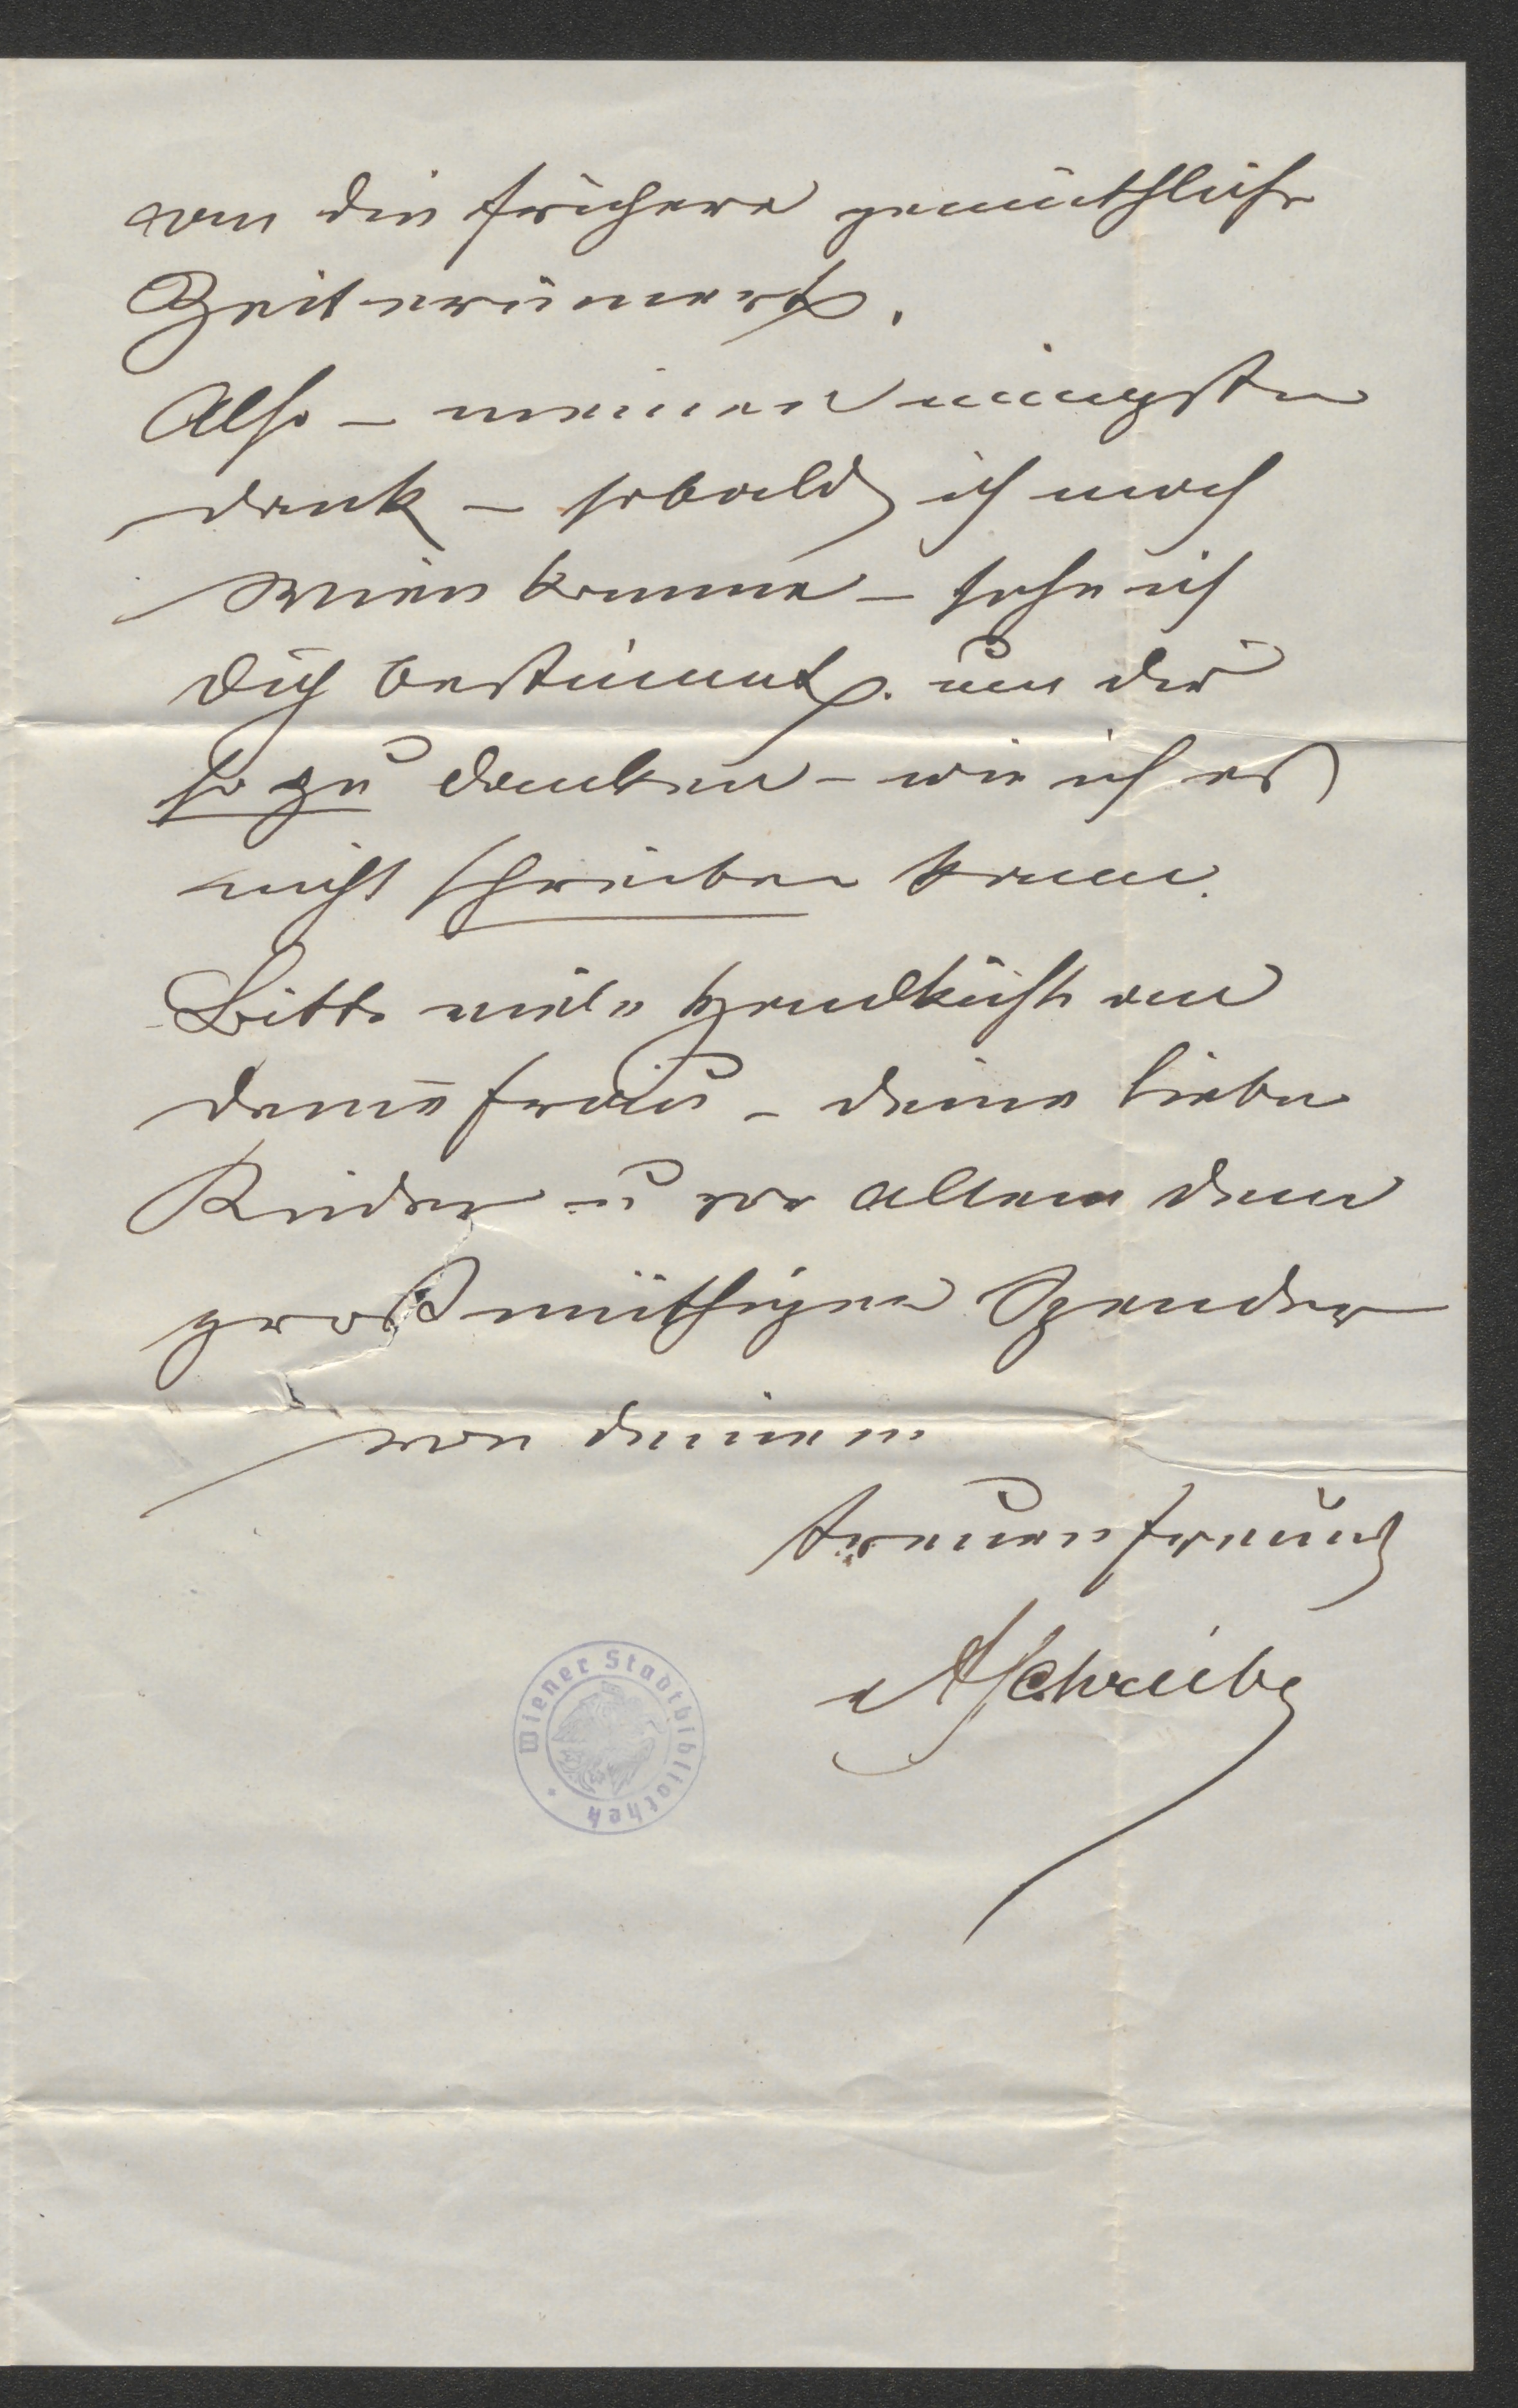 an die frühere gemüthliche
Zeit erinnert.
Also – meinen innigsten
Dank – sobald ich nach
Wien komme – sehe ich
Dich bestimmt. um dir
so zu danken – wie ich es
nicht schreiben kann.
Bitte viele Handküsse an
deine Frau – deine lieben
Kinder u vor allem dem
großmüthigen Spender
von deinem
treuen Freund
ASchreiber
Wiener Stadtbibliothek